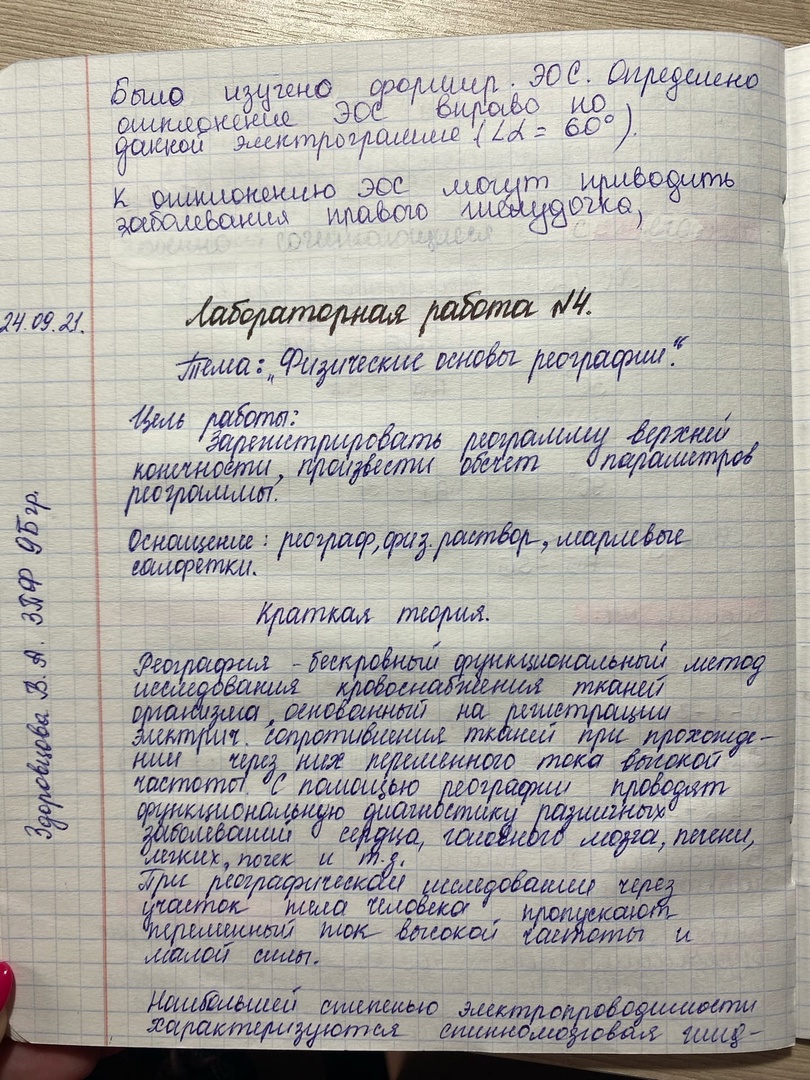 Было изучено формир. ЭОС. Определено
отклонение ЭОС вправо по
данной электрограмме (∠α = 60°).
К отклонению ЭОС могут приводить
заболевания правого желудочка,
24.09.21.
Лабораторная работа №4.
Тема: „Физические основы реографии."
Цель работы:
Зарегистрировать реограмму верхней
конечности, произвести обсчет параметров
реограммы.
Оснащение: реограф, физ. раствор, марлевые
салфетки.
Краткая теория.
Реография - бескровный функциональный метод
исследования кровоснабжения тканей
организма, основанный на регистрации
электрич. сопротивления тканей при прохожде-
нии через них переменного тока высокой
частоты. С помощью реографии проводят
функциональную диагностику различных
заболеваний сердца, головного мозга, печени,
легких, почек и т.д.
При реографической исследовании через
участок тела человека пропускают
переменный ток высокой частоты и
малой силы.
Наибольшей степенью электропроводимости
характеризуются спинномозговая жид-
Здоровцова В. А. ЗПФ 9Б гр.